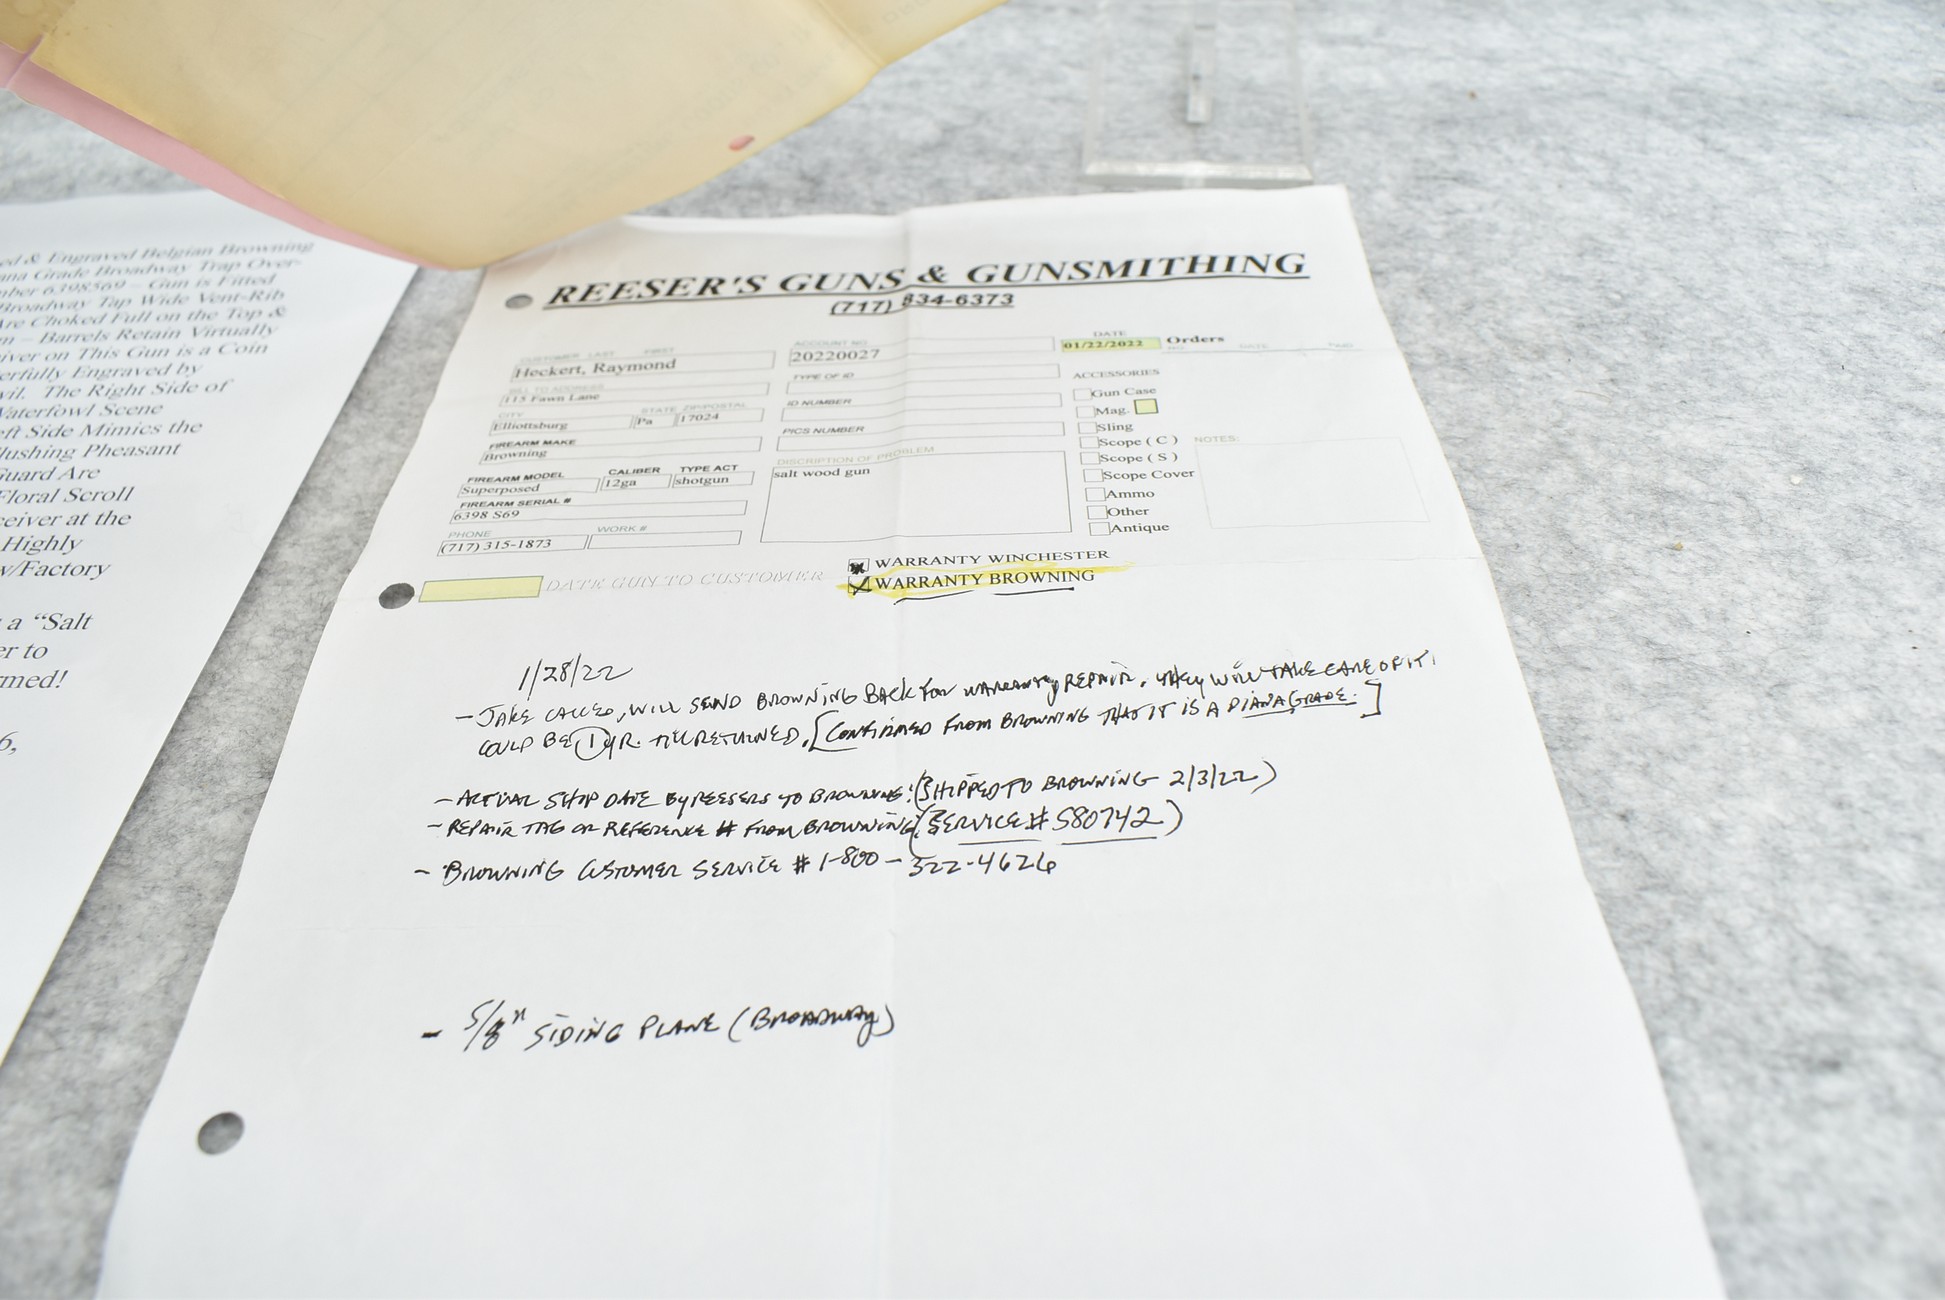 ed & Engraved Belgian Browning
ana Grade Broadway Trap Over-
mber 6398S69 – Gun is Fitted
Broadway Tap Wide Vent-Rib
Are Choked Full on the Top &
m – Barrels Retain Virtually
iver on This Gun is a Coin
erfully Engraved by
vil. The Right Side of
Waterfowl Scene
eft Side Mimics the
lushing Pheasant
Guard Are
Floral Scroll
ceiver at the
Highly
w/Factory
a “Salt
er to
med!
6,
REESER'S GUNS & GUNSMITHING
(717) 834-6373
CUSTOMER LAST FIRST
Heckert, Raymond
BILL TO ADDRESS
115 Fawn Lane
CITY STATE ZIP/POSTAL
Elliottsburg Pa 17024
FIREARM MAKE
Browning
FIREARM MODEL CALIBER TYPE ACT
Superposed 12ga shotgun
FIREARM SERIAL #
6398 S69
PHONE WORK #
(717) 315-1873
ACCOUNT NO.
20220027
TYPE OF ID
ID NUMBER
PICS NUMBER
DISCRIPTION OF PROBLEM
salt wood gun
DATE
01/22/2022 Orders
DATE
ACCESSORIES
Gun Case
Mag.
Sling
Scope ( C )
Scope ( S )
Scope Cover
Ammo
Other
Antique
NOTES:
WARRANTY WINCHESTER
WARRANTY BROWNING
DATE GUN TO CUSTOMER
1/28/22
- JAKE CALLED, WILL SEND BROWNING BACK FOR WARRANTY REPAIR. THEY WILL TAKE CARE OF IT!
COULD BE 1 YR. TILL RETURNED. [CONFIRMED FROM BROWNING THAT IT IS A DIANA GRADE.]
- ACTUAL SHIP DATE BY REESERS TO BROWNING: (SHIPPED TO BROWNING 2/3/22)
- REPAIR TAG OR REFERENCE # FROM BROWNING (SERVICE # S80742)
- BROWNING CUSTOMER SERVICE # 1-800-322-4626
- 5/8" SIDING PLANE (BROADWAY)